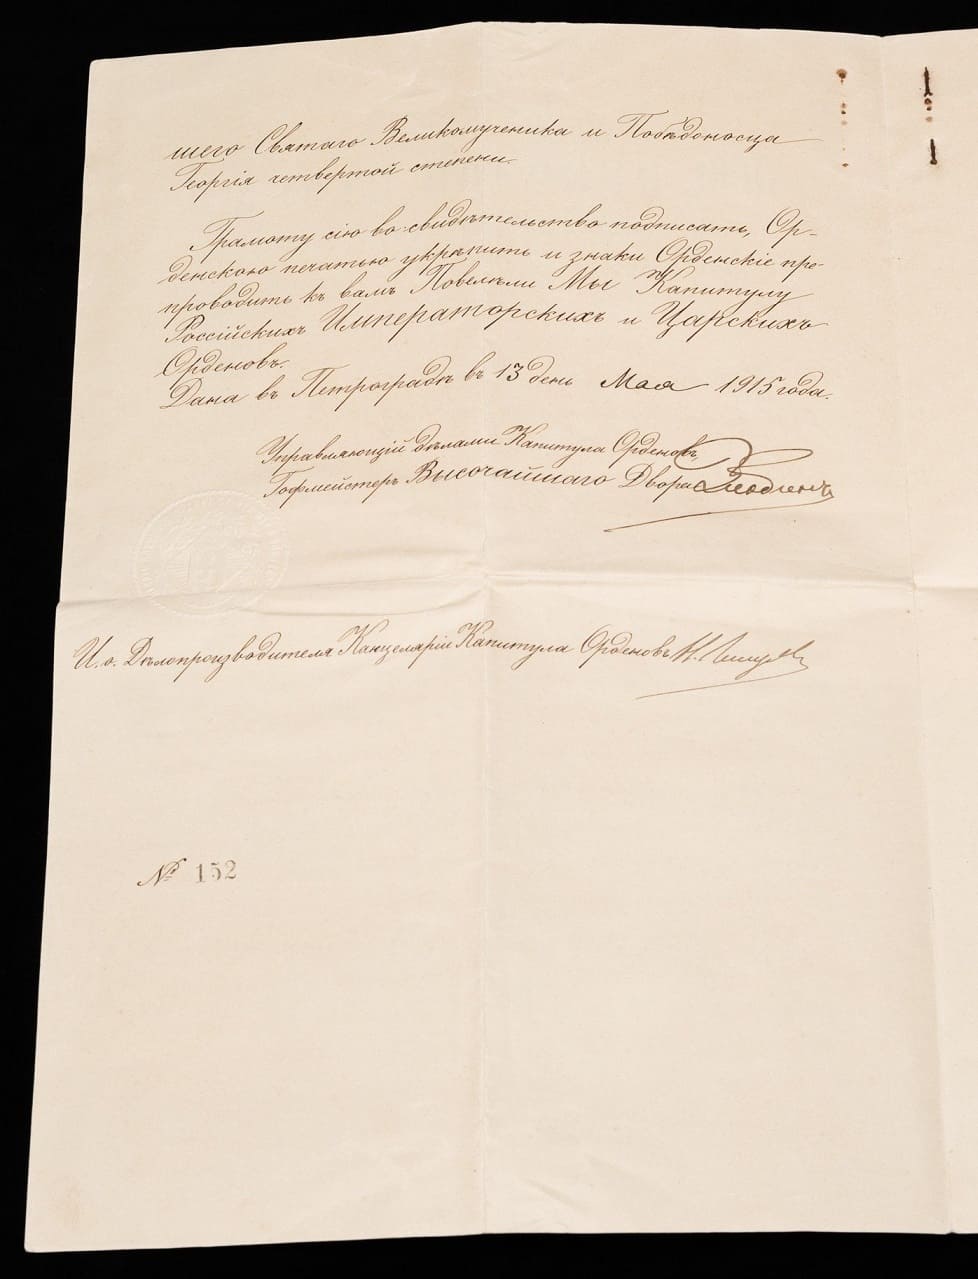 шего Святаго Великомученика и Побѣдоносца
Георгія четвертой степени.
Грамоту сію во свидѣтельство подписать, Ор-
денскою печатью укрѣпить и знаки Орденскіе пре-
проводить къ вамъ Повелѣли Мы Капитулу
Россійскихъ Императорскихъ и Царскихъ
Орденовъ.
Дана въ Петроградѣ въ 13 день Мая 1915 года.
Управляющій дѣлами Капитула Орденовъ
Гофмейстеръ Высочайшаго Двора
И. о. Дѣлопроизводителя Канцеляріи Капитула Орденовъ
№ 152